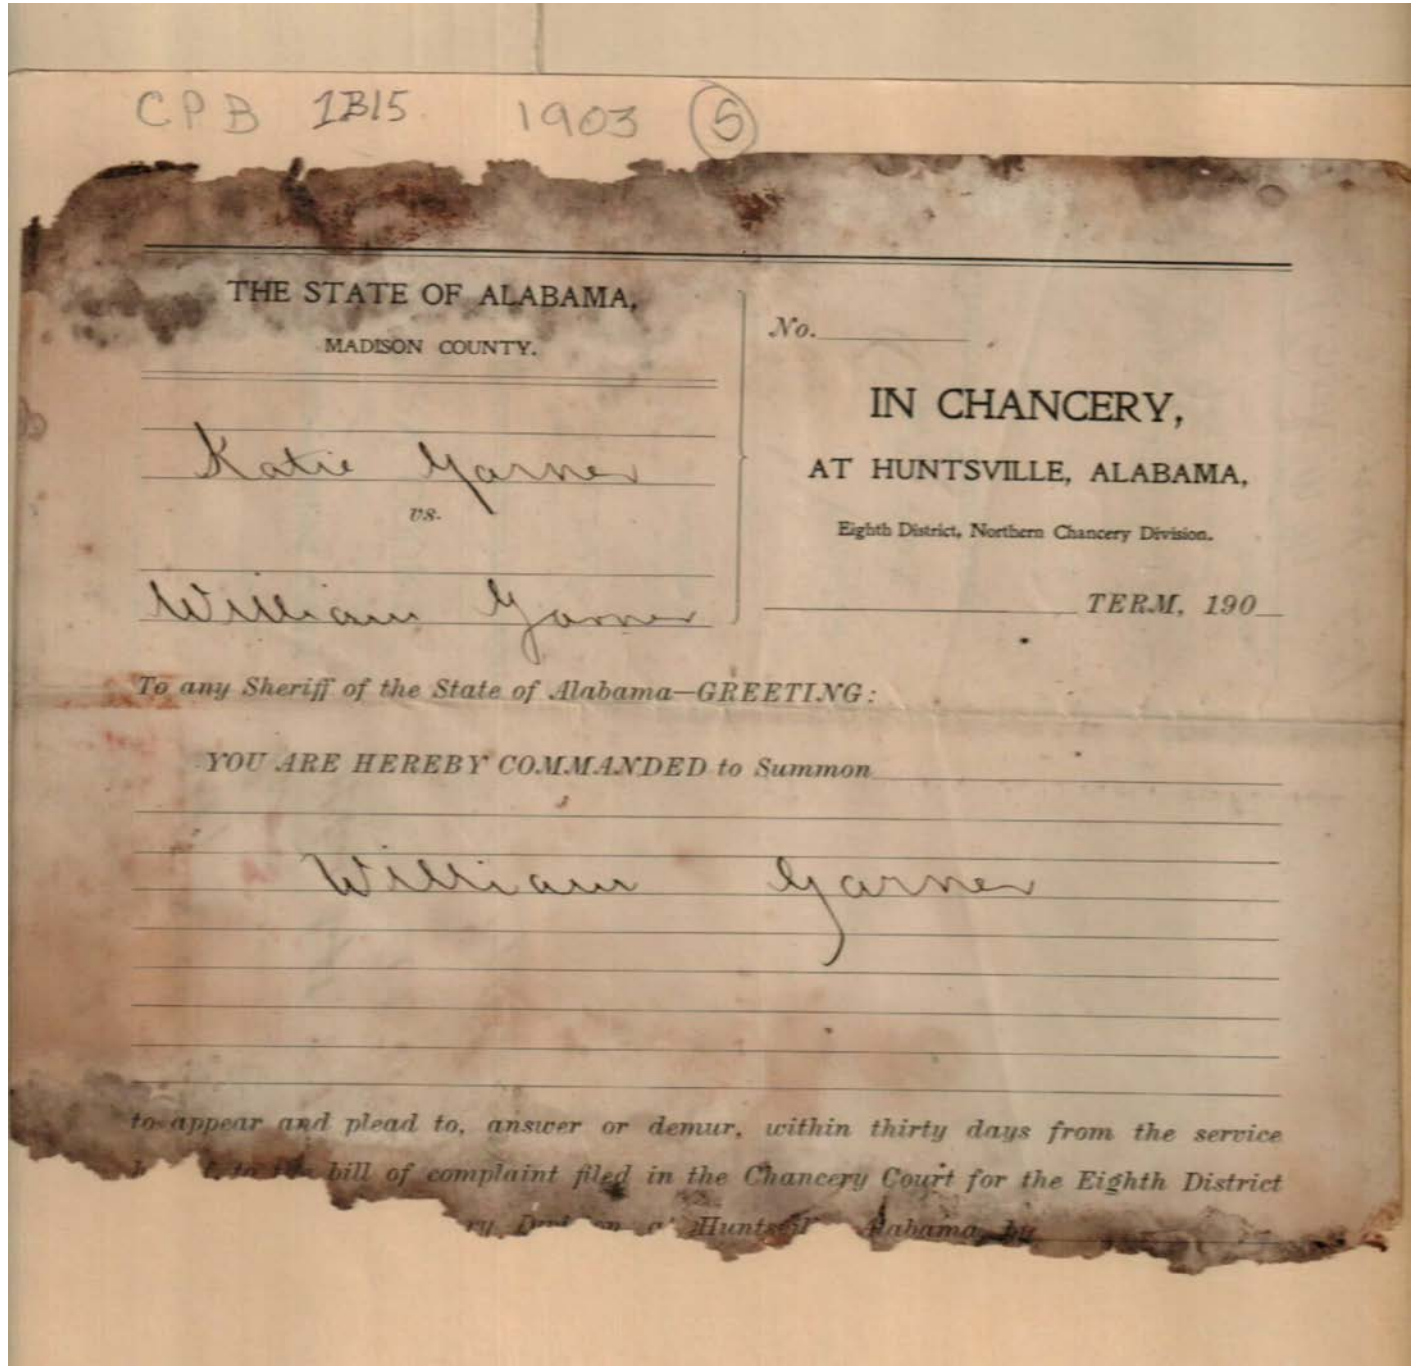 CPB 1B15 1903 5
THE STATE OF ALABAMA,
MADISON COUNTY.
Katie Garner
vs.
William Garner
No.
IN CHANCERY,
AT HUNTSVILLE, ALABAMA,
Eighth District, Northern Chancery Division.
TERM, 190
To any Sheriff of the State of Alabama—GREETING:
YOU ARE HEREBY COMMANDED to Summon
William Garner
to appear and plead to, answer or demur, within thirty days from the service
bill of complaint filed in the Chancery Court for the Eighth District
Alabama, by